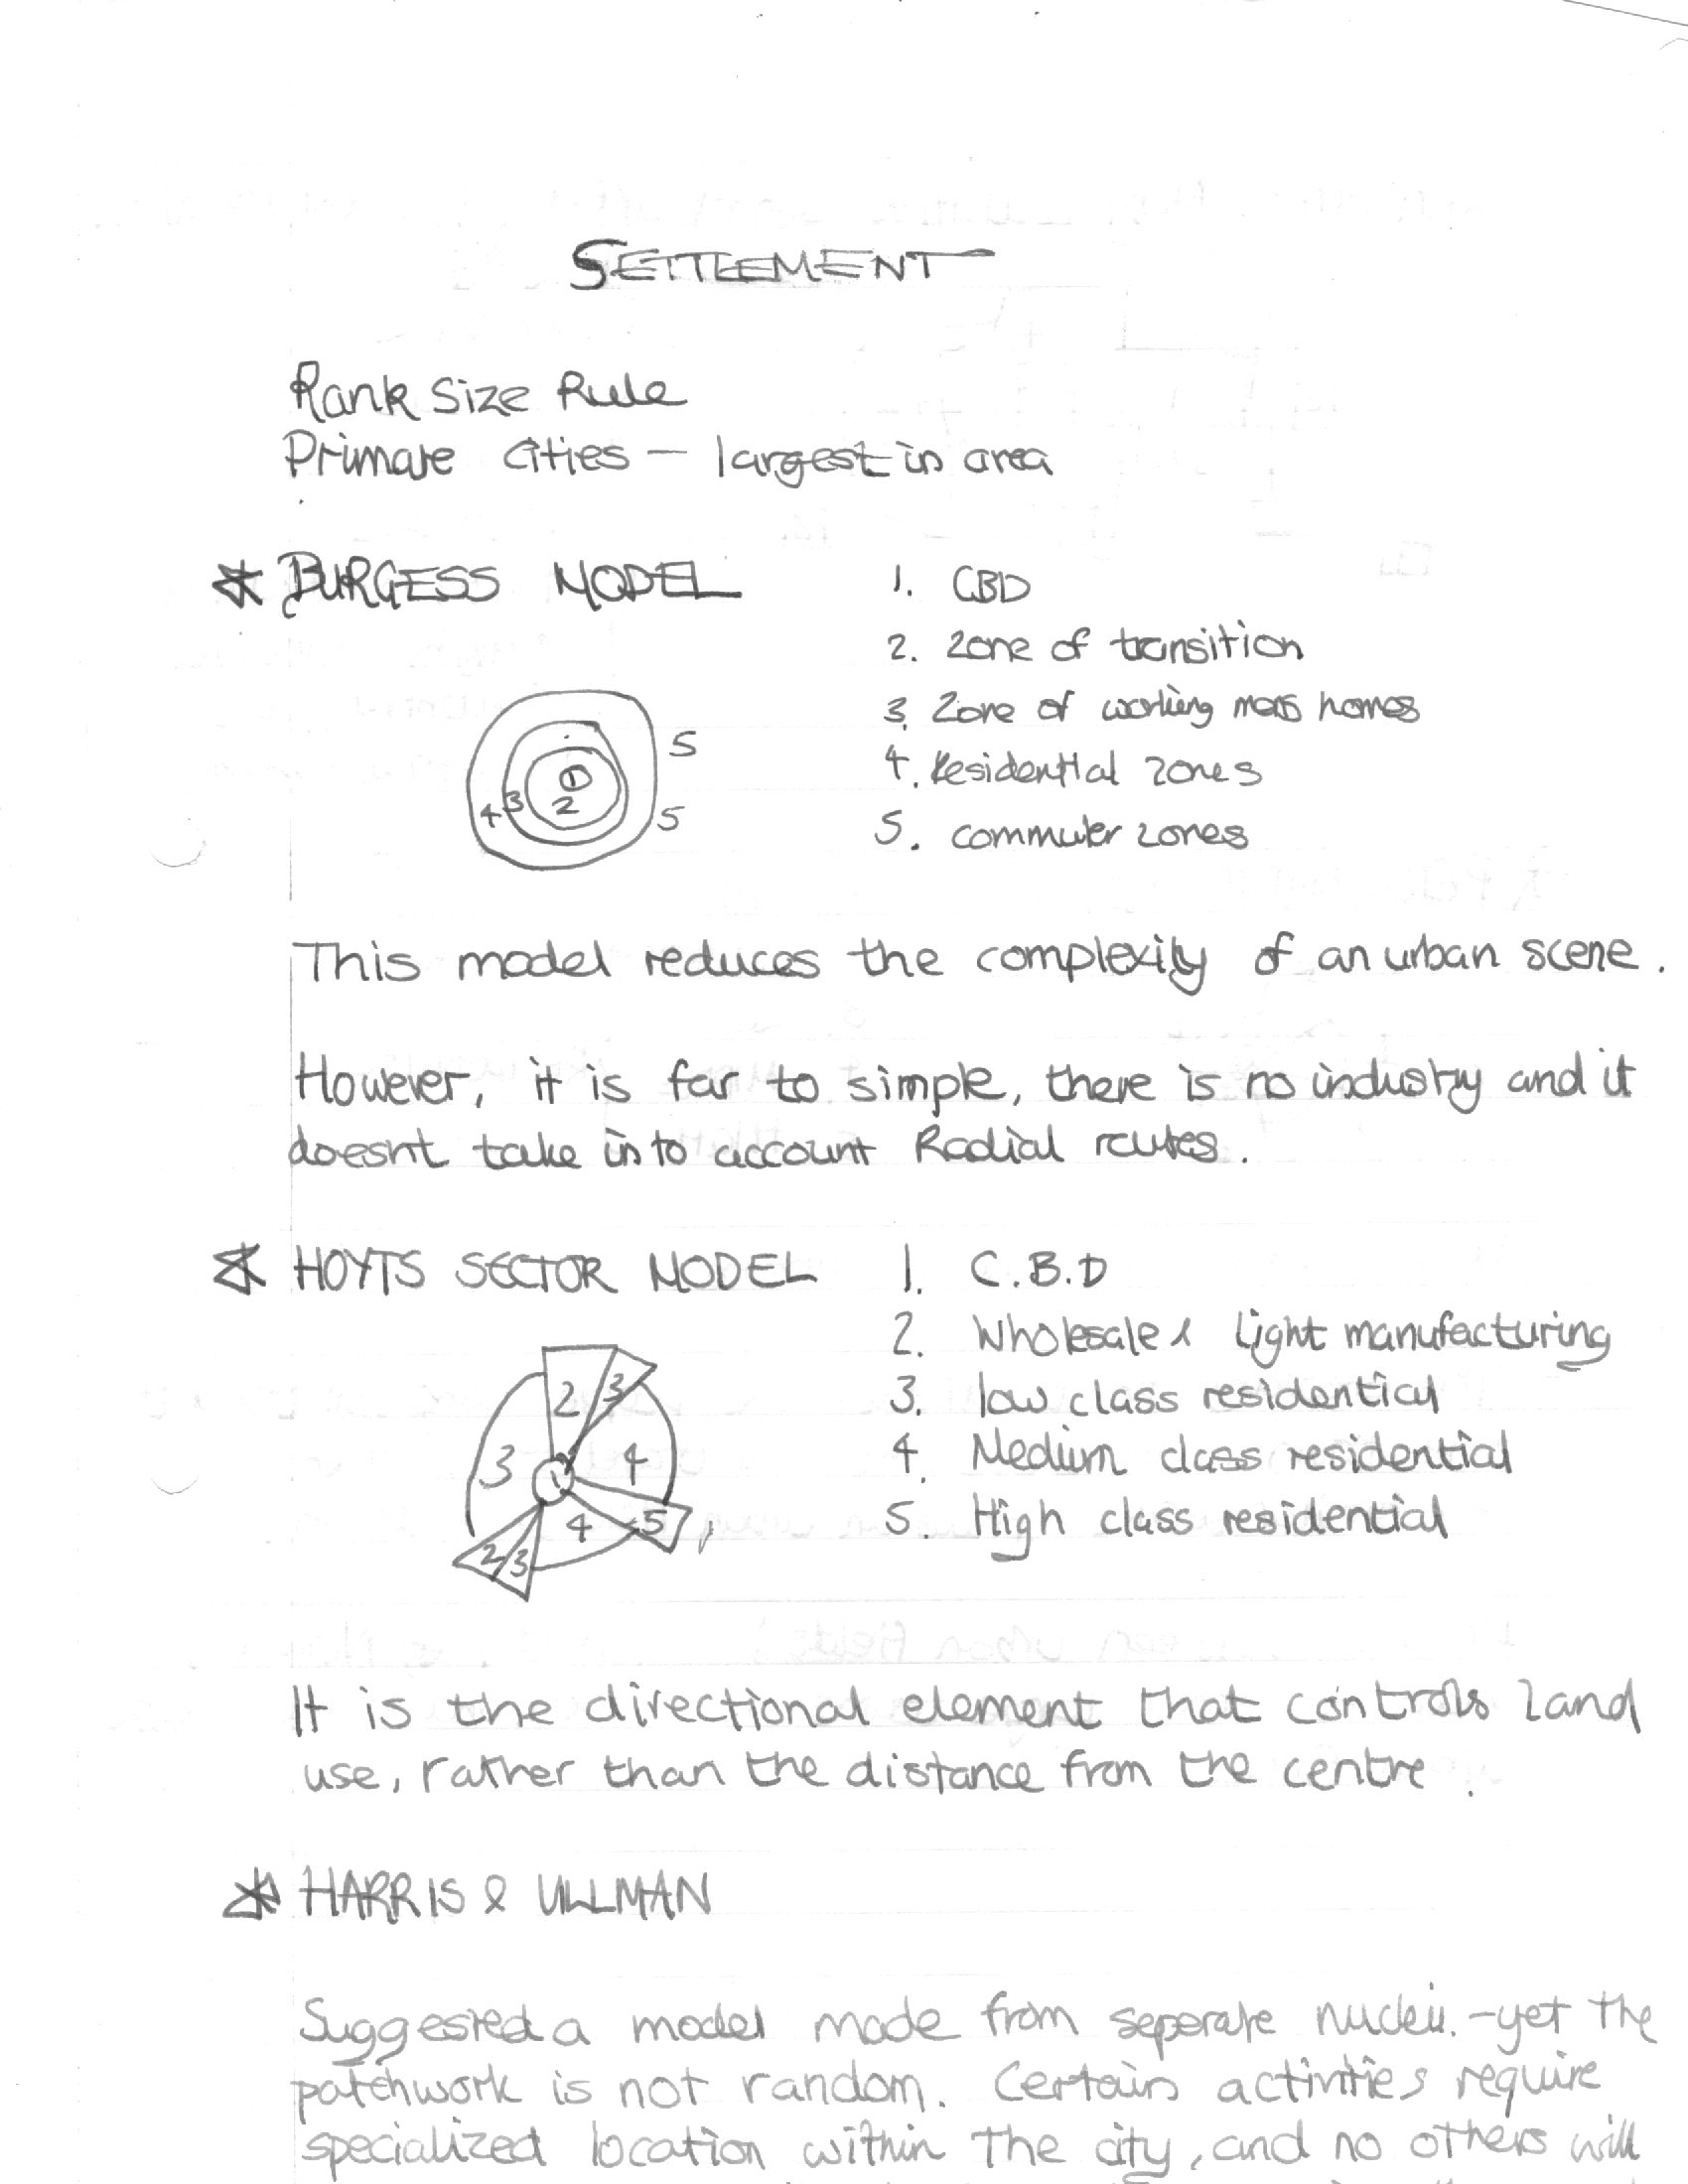 SETTLEMENT
Rank Size Rule
Primate Cities – largest in area
* BURGESS MODEL
1. CBD
2. Zone of transition
3. Zone of working mens homes
4. Residential zones
5. commuter zones
1
2
3
4
5
5
This model reduces the complexity of an urban scene.
However, it is far to simple, there is no industry and it
doesn't take into account Radial routes.
* HOYTS SECTOR MODEL
1. C.B.D
2. Wholesale & Light manufacturing
3. low class residential
4. Medium class residential
5. High class residential
2
3
3
4
1
4
5
2
3
It is the directional element that controls land
use, rather than the distance from the centre.
* HARRIS & ULLMAN
Suggested a model made from seperate nucleii. - yet the
patchwork is not random. Certain activities require
specialized location within the city, and no others will